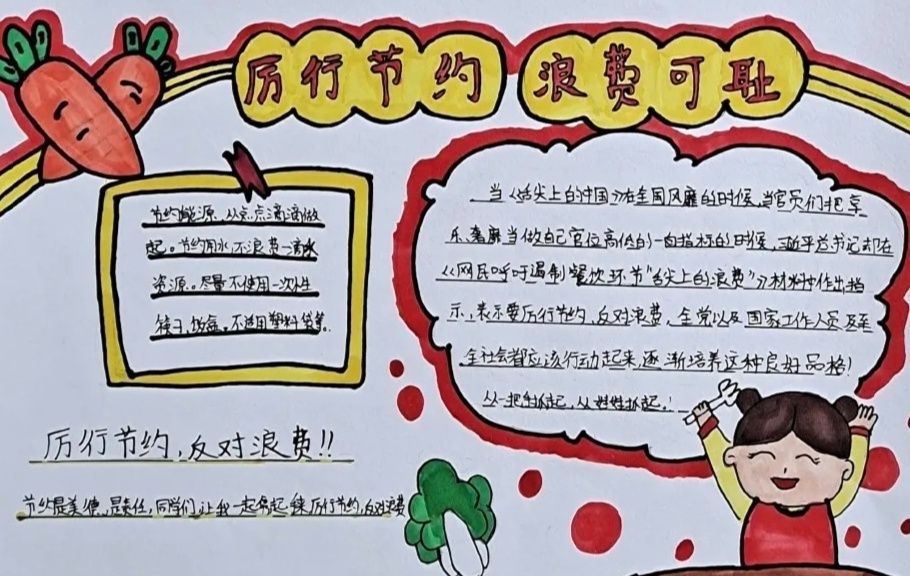 厉行节约 浪费可耻
节约能源、从点点滴滴做
起。节约用水不浪费一滴水
资源。尽量不使用一次性
筷子、饭盒。不适用塑料袋等。
当《舌尖上的中国》在全国风靡的时候,当官员们把享
乐、奢靡当做自己官位高低的一向指标的时候,习近平总书记却在
《网民呼吁遏制餐饮环节"舌尖上的浪费"》材料中作出指
示,表示要厉行节约,反对浪费,全党以及国家工作人员及至
全社会都应该行动起来,逐渐培养这种良好品格!
从一把手抓起,从娃娃抓起。!
厉行节约,反对浪费!!
节约是美德,是责任,同学们,让我一起来厉行节约,反对浪费